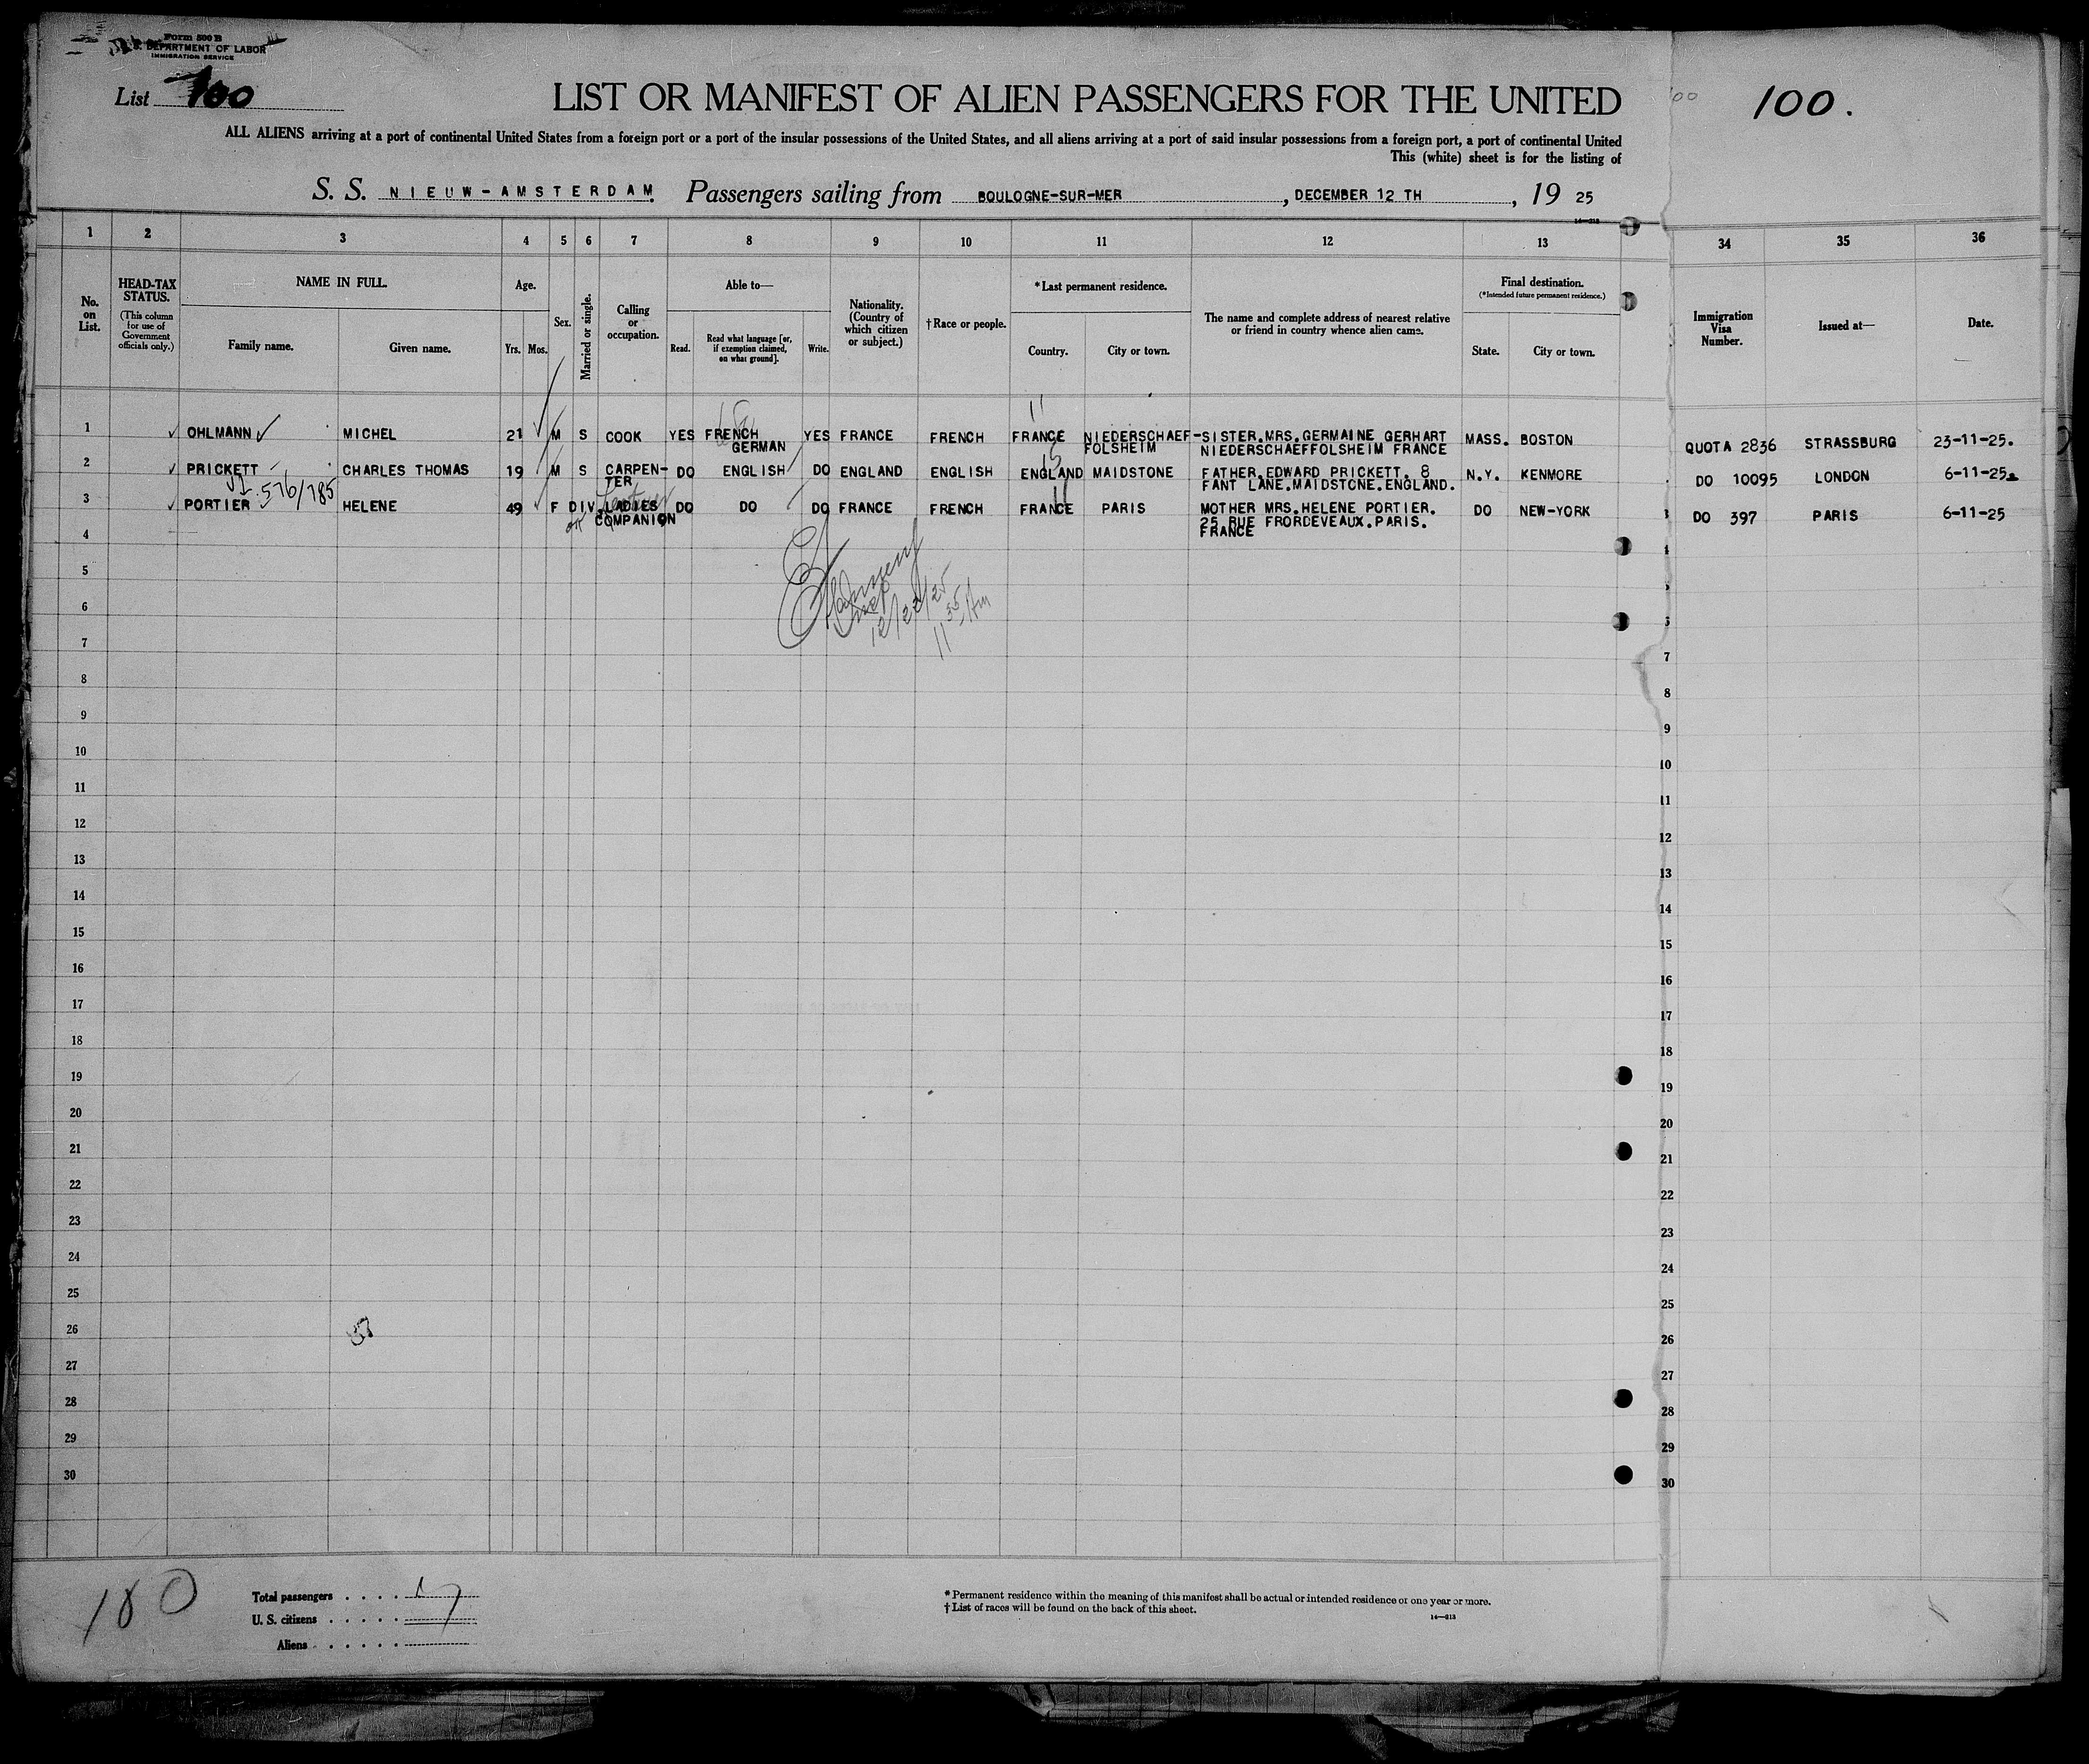 Form 500 B
DEPARTMENT OF LABOR
IMMIGRATION SERVICE
List 100
LIST OR MANIFEST OF ALIEN PASSENGERS FOR THE UNITED
100.
ALL ALIENS arriving at a port of continental United States from a foreign port or a port of the insular possessions of the United States, and all aliens arriving at a port of said insular possessions from a foreign port, a port of continental United
This (white) sheet is for the listing of
S. S. NIEUW-AMSTERDAM. Passengers sailing from BOULOGNE-SUR-MER, DECEMBER 12 TH, 19 25
1 2 3 4 5 6 7 8 9 10 11 12 13 34 35 36
No. on List.
HEAD-TAX STATUS.
(This column for use of Government officials only.)
NAME IN FULL.
Family name. Given name.
Age.
Yrs. Mos.
Sex.
Married or single.
Calling or occupation.
Able to—
Read. Read what language [or, if exemption claimed, on what ground]. Write.
Nationality. (Country of which citizen or subject.)
†Race or people.
*Last permanent residence.
Country. City or town.
The name and complete address of nearest relative or friend in country whence alien came.
Final destination.
(*Intended future permanent residence.)
State. City or town.
Immigration Visa Number.
Issued at—
Date.
1 OHLMANN MICHEL 21 M S COOK YES FRENCH GERMAN YES FRANCE FRENCH FRANCE NIEDERSCHAEF-FOLSHEIM SISTER.MRS.GERMAINE GERHART NIEDERSCHAEFFOLSHEIM FRANCE MASS. BOSTON QUOTA 2836 STRASSBURG 23-11-25.
2 PRICKETT CHARLES THOMAS 19 M S CARPEN-TER DO ENGLISH DO ENGLAND ENGLISH ENGLAND MAIDSTONE FATHER.EDWARD PRICKETT. 8 FANT LANE.MAIDSTONE.ENGLAND. N.Y. KENMORE DO 10095 LONDON 6-11-25.
576/785
3 PORTIER HELENE 49 F DIV. LADIES COMPANION DO DO DO FRANCE FRENCH FRANCE PARIS MOTHER MRS.HELENE PORTIER. 25 RUE FRORDEVEAUX.PARIS. FRANCE DO NEW-YORK DO 397 PARIS 6-11-25
4
5
12/22/25
6
11 35 Am
7 7
8 8
9 9
10 10
11 11
12 12
13 13
14 14
15 15
16 16
17 17
18 18
19 19
20 20
21 21
22 22
23 23
24 24
25 25
26 26
27 27
28 28
29 29
30 30
180
Total passengers . . . .
U. S. citizens . . . . .
Aliens . . . . . .
* Permanent residence within the meaning of this manifest shall be actual or intended residence of one year or more.
† List of races will be found on the back of this sheet.
14—213